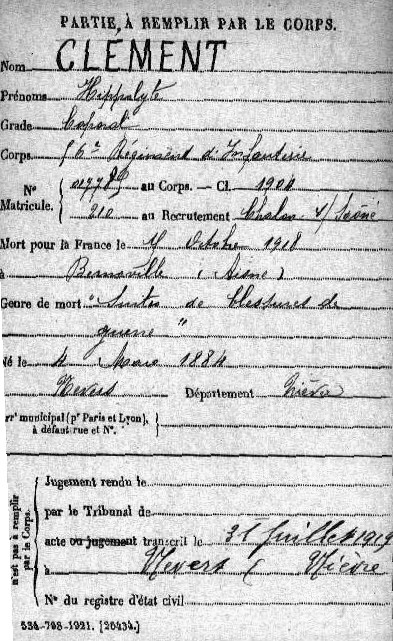 PARTIE À REMPLIR PAR LE CORPS.
Nom CLÉMENT
Prénoms Hippolyte
Grade Caporal
Corps 56e Régiment d'Infanterie
N° Matricule. au Corps. — Cl. 1904
210 au Recrutement Chalon s/ Saône
Mort pour la France le Octobre 1918
à Bernoville (Aisne)
Genre de mort "Suites de blessures de
guerre"
Né le 4 Mars 1884
Nevers Département Nièvre
arrt municipal (pr Paris et Lyon),
à défaut rue et N°.
n'est pas à remplir
par le Corps.
Jugement rendu le
par le Tribunal de
acte ou jugement transcrit le 31 Juillet 1919
à Nevers ( Nièvre
N° du registre d'état civil
534-708-1921. [26434.]